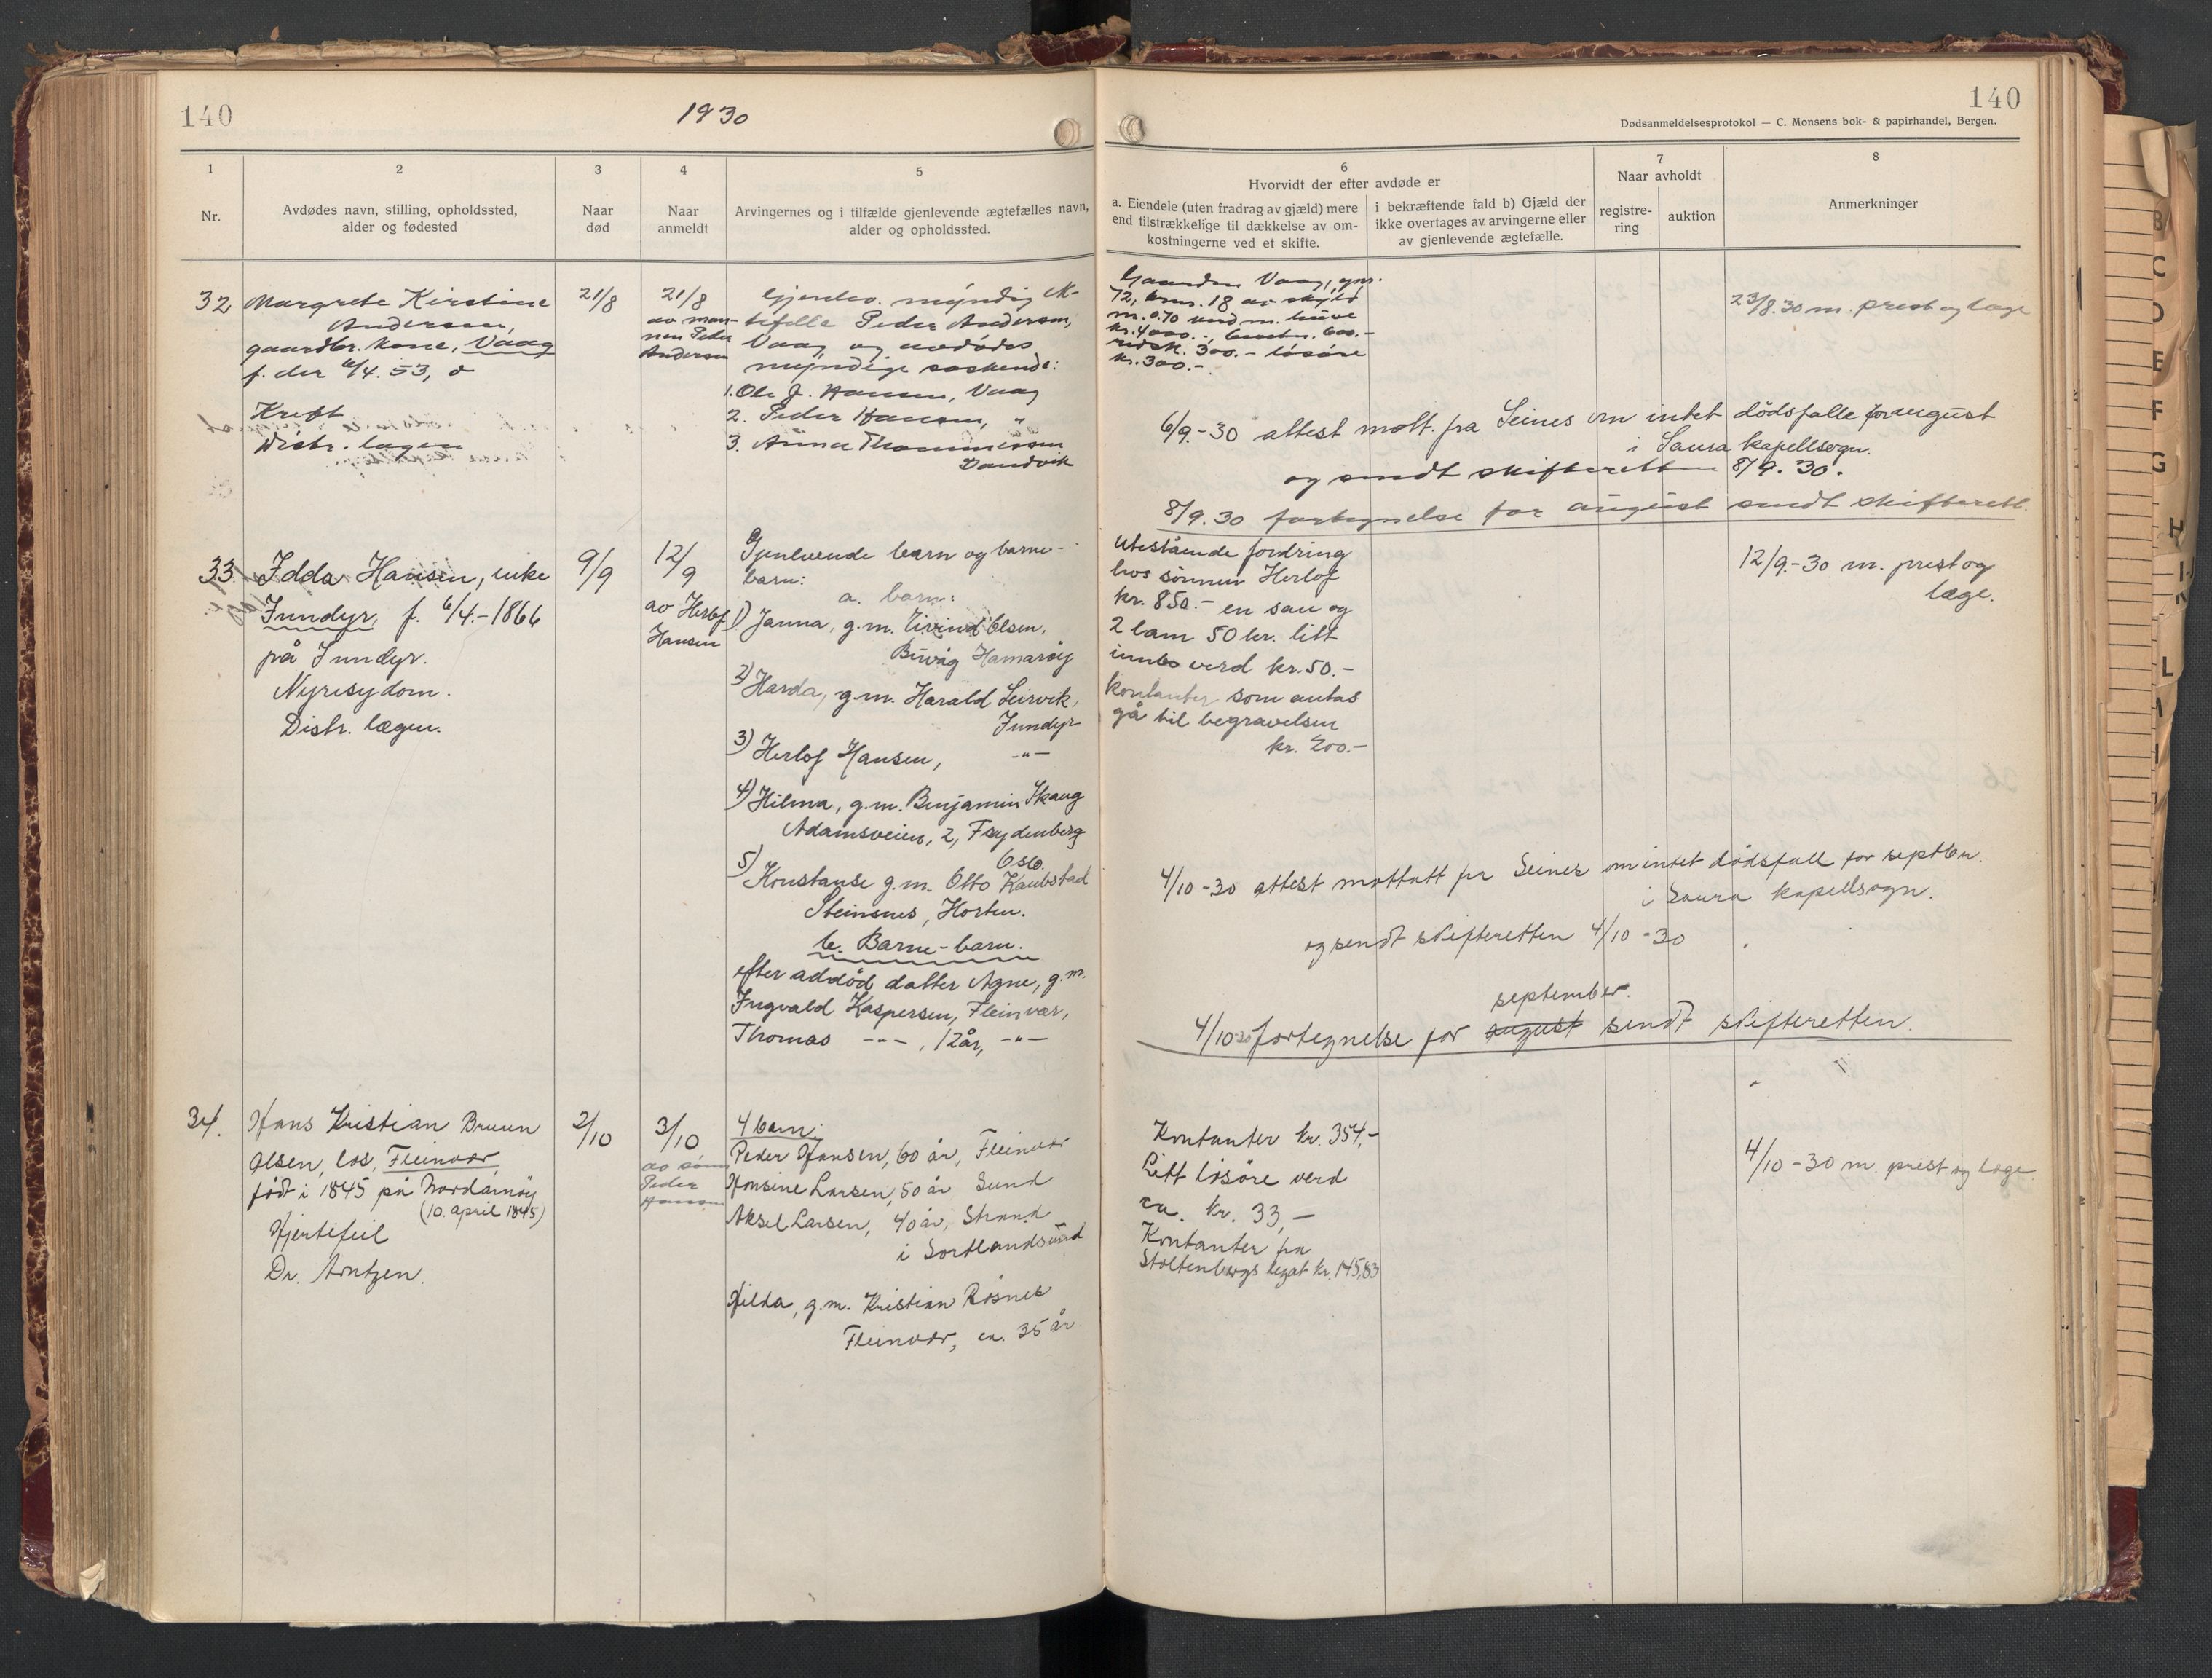 140
1930
140
Dødsanmeldelsesprotokol — C. Monsens bok- & papirhandel, Bergen.
1
Nr.
2
Avdødes navn, stilling, opholdssted,
alder og fødested
3
Naar
død
4
Naar
anmeldt
5
Arvingernes og i tilfælde gjenlevende ægtefælles navn,
alder og opholdssted.
6
Hvorvidt der efter avdøde er
a. Eiendele (uten fradrag av gjæld) mere
end tilstrækkelige til dækkelse av om-
kostningerne ved et skifte.
i bekræftende fald b) Gjæld der
ikke overtages av arvingerne eller
av gjenlevende ægtefælle.
7
Naar avholdt
registre-
ring
auktion
8
Anmerkninger
32
Margrete Kirstine
Andersen,
gaardbr. kone, Vaag
f. der 6/4. 53,
Kreft
Distr. lægen
21/8
21/8
av man-
nen Peder
Andersen
Gjenlev. myndig ek-
tefelle Peder Andersen,
Vaag, og avdødes
myndige søskende:
1. Ole J. Hansen, Vaag
2. Peder Hansen, "
3. Anna Thommessen
Sandvik
Gaarden Vaag, gnr.
72, bnr. 18 av skyld
m. 0.70 verd m. huse
kr. 4000.-, 600.-
redsk. 300.- løsøre
kr. 300.-
23/8.30 m. prest og læge
6/9.-30 attest mott. fra Seines om intet dödsfalle for august
i Saura kapellsogn.
og sendt skifteretten 8/9. 30.
8/9.30 fortegnelse for august sendt skifterett.
33.
Idda Hansen, enke
Inndyr, f. 6/4.-1866
på Inndyr.
Nyresydom.
Distr. lægen.
9/9
12/9
av Herlof
Hansen
Gjenlevende barn og barne-
barn:
a. barn:
1) Janna, g.m. Eivind Olsen,
Buvåg Hamarøy
2) Harda, g.m. Harald Leirvik,
Inndyr
3) Herlof Hansen, -"-
4) Hilma, g.m. Benjamin Skaug
Adamsveien, 2, Frydenberg
Oslo.
5) Konstanse g.m. Otto Kaubstad
Steinsnes, Horten.
b. Barne-barn.
efter addöd datter Agne, g.m.
Ingvald Kaspersen, Fleinvær,
Thomas -"-, 12 år, -"-
Utestående fordring
hos sønnen Herlof
kr. 850.- en sau og
2 lam 50 kr. litt
innbo verd kr. 50.-
kontanter som antas
gå til begravelsen
kr. 200.-
12/9.-30 m. prest og
læge.
4/10-30 attest mottatt fra Seines om intet dødsfall for septbr.
i Saura kapellsogn.
og sendt skifteretten 4/10-30
september.
4/10 30 fortegnelse for august sendt skifteretten.
34.
Hans Kristian Bruun
Olsen, los, Fleinvær,
født i 1845 på Nordarnöy
(10. april 1845)
Hjertefeil
Dr. Arntzen.
2/10
3/10
av sønn
Peder
Hansen
4 barn:
Peder Hansen, 60 år, Fleinvær
Hansine Larsen, 50 år Sund
Aksel Larsen, 40 år, Strand
i Sortlandsund
Hilda, g.m. Kristian Røsnes
Fleinvær, ca. 35 år
Kontanter kr. 354,-
Litt løsøre verd
ca. kr. 33,-
Kontanter fra
Stoltenbergs legat kr. 145,83
4/10-30 m. prest og læge